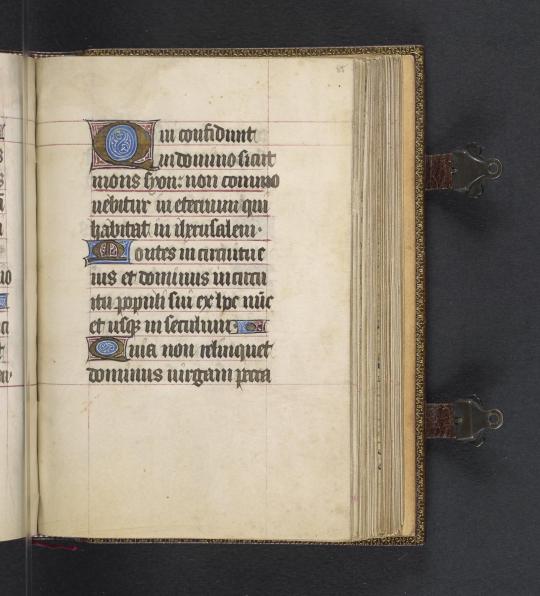 85
Qui confidunt
in domino sicut
mons syon: non commo
uebitur in eternum qui
habitat in iherusalem.
Montes in circuitu e
ius et dominus in circu
itu populi sui ex hoc nuc
et usq in seculum.
Quia non relinquet
dominus uirgam pecca